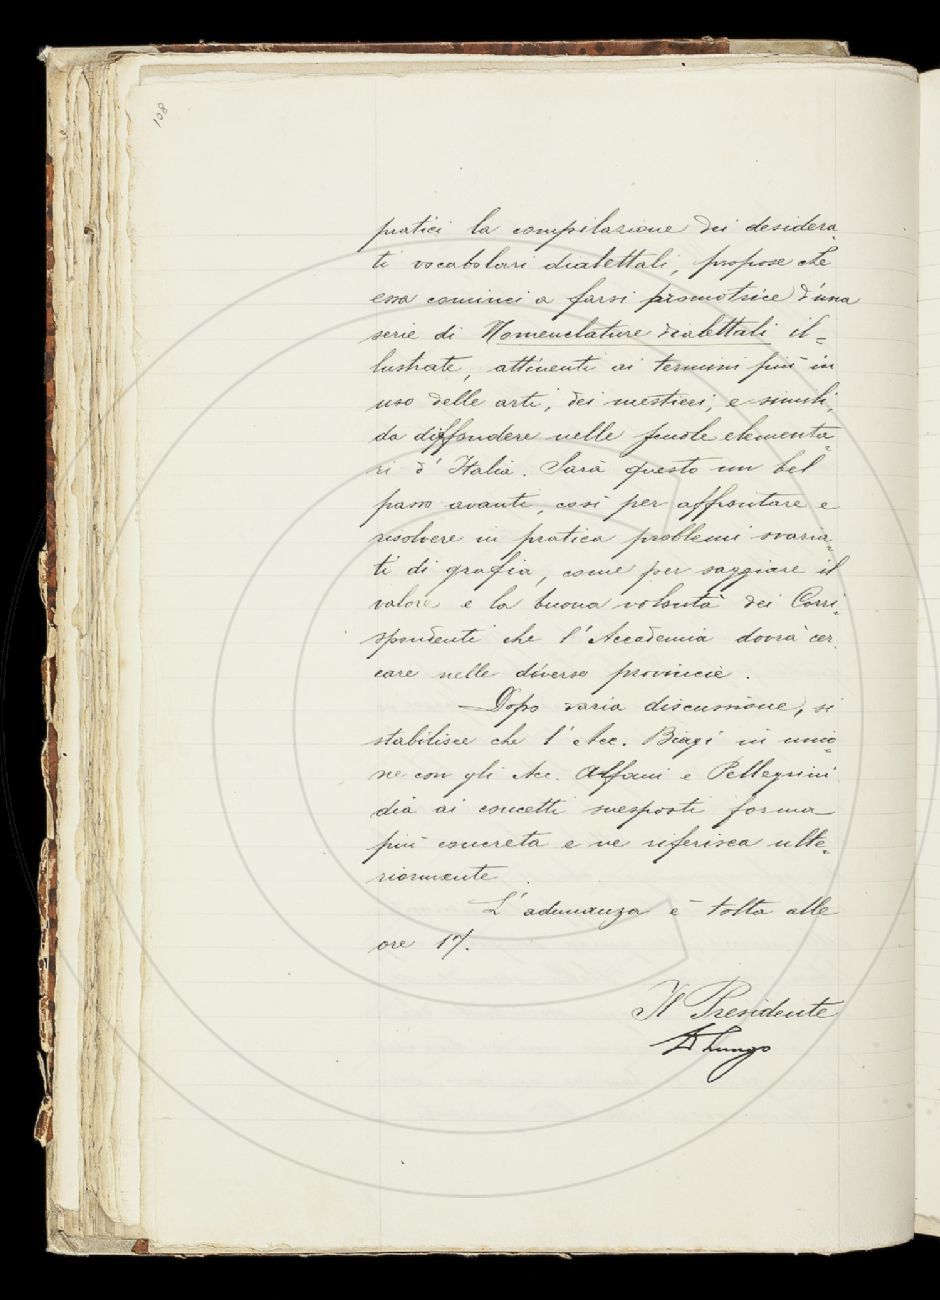 108
pratici la compilazione dei desidera
ti vocabolari dialettali, propose che
essa cominci a farsi promotrice d'una
serie di Nomenclature dialettali il=
lustrate, attinenti ai termini più in
uso delle arti, dei mestieri, e simili,
da diffondere nelle scuole elementa=
ri d'Italia. Sarà questo un bel
passo avanti, così per affrontare e
risolvere in pratica problemi svaria=
ti di grafia, come per saggiare il
valore e la buona volontà dei Corri=
spondenti che l'Accademia dovrà cer
care nelle diverse provincie.
Dopo varia discussione, si
stabilisce che l'Acc. Biagi in unio=
ne con gli Acc. Alfani e Pellegrini
dia ai concetti suesposti forma
più concreta e ne riferisca ulte=
riormente
L'adunanza è tolta alle
ore 17.
Il Presidente
D Lungo